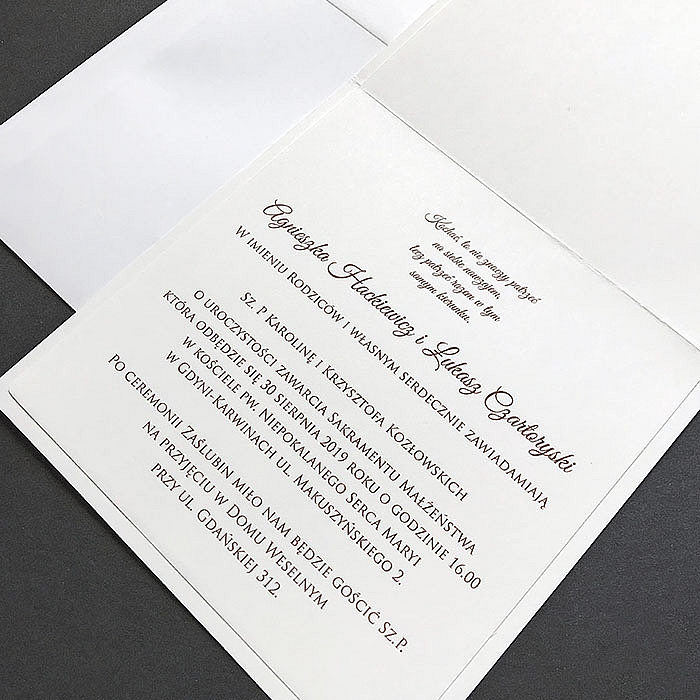 Kochać, to nie znaczy patrzeć
na siebie nawzajem,
lecz patrzeć razem w tym
samym kierunku.
Agnieszka Hackiewicz i Łukasz Czartoryski
w imieniu Rodziców i własnym serdecznie zawiadamiają
Sz. P Karolinę i Krzysztofa Kozłowskich
o uroczystości zawarcia Sakramentu Małżeństwa
która odbędzie się 30 sierpnia 2019 roku o godzinie 16.00
w kościele pw. Niepokalanego Serca Maryi
w Gdyni-Karwinach ul. Makuszyńskiego 2.
Po ceremonii Zaślubin miło nam będzie gościć Sz.P.
na przyjęciu w Domu Weselnym
przy ul. Gdańskiej 312.